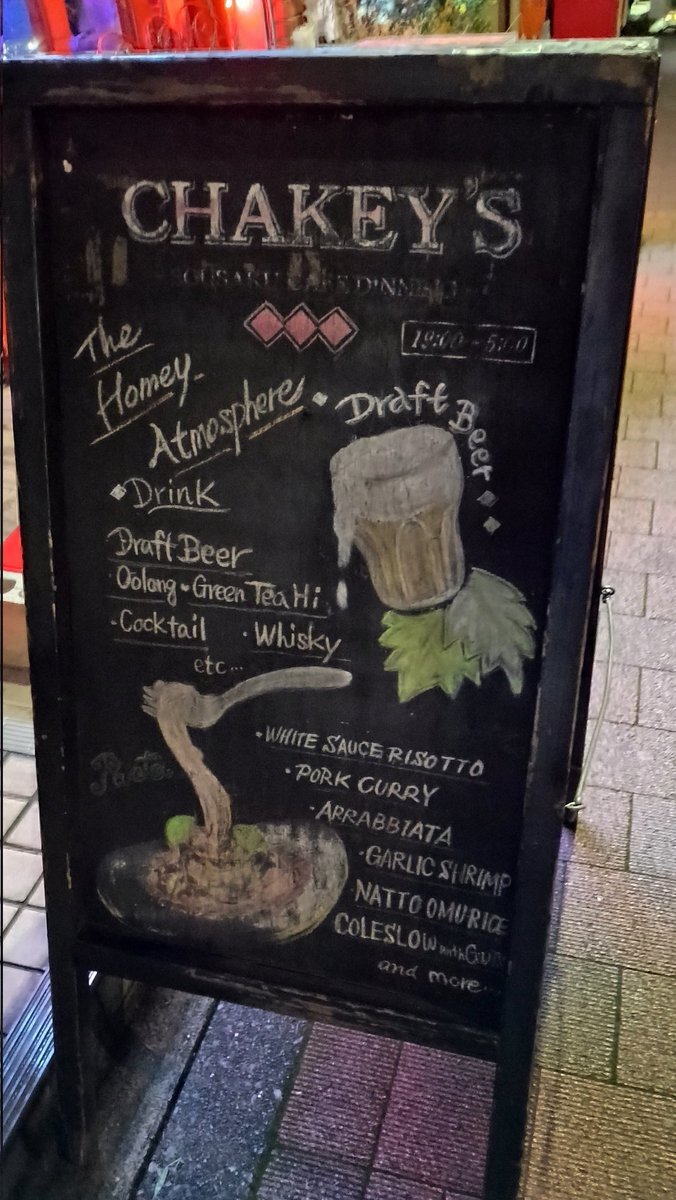 CHAKEY'S
19:00 - 5:00
The
Homey
Atmosphere
Draft Beer
Drink
Draft Beer
Oolong・Green Tea Hi
・Cocktail ・Whisky
etc...
Pasta
・WHITE SAUCE RISOTTO
・PORK CURRY
・ARRABBIATA
・GARLIC SHRIMP
NATTO OMURICE
COLESLOW with
and more...